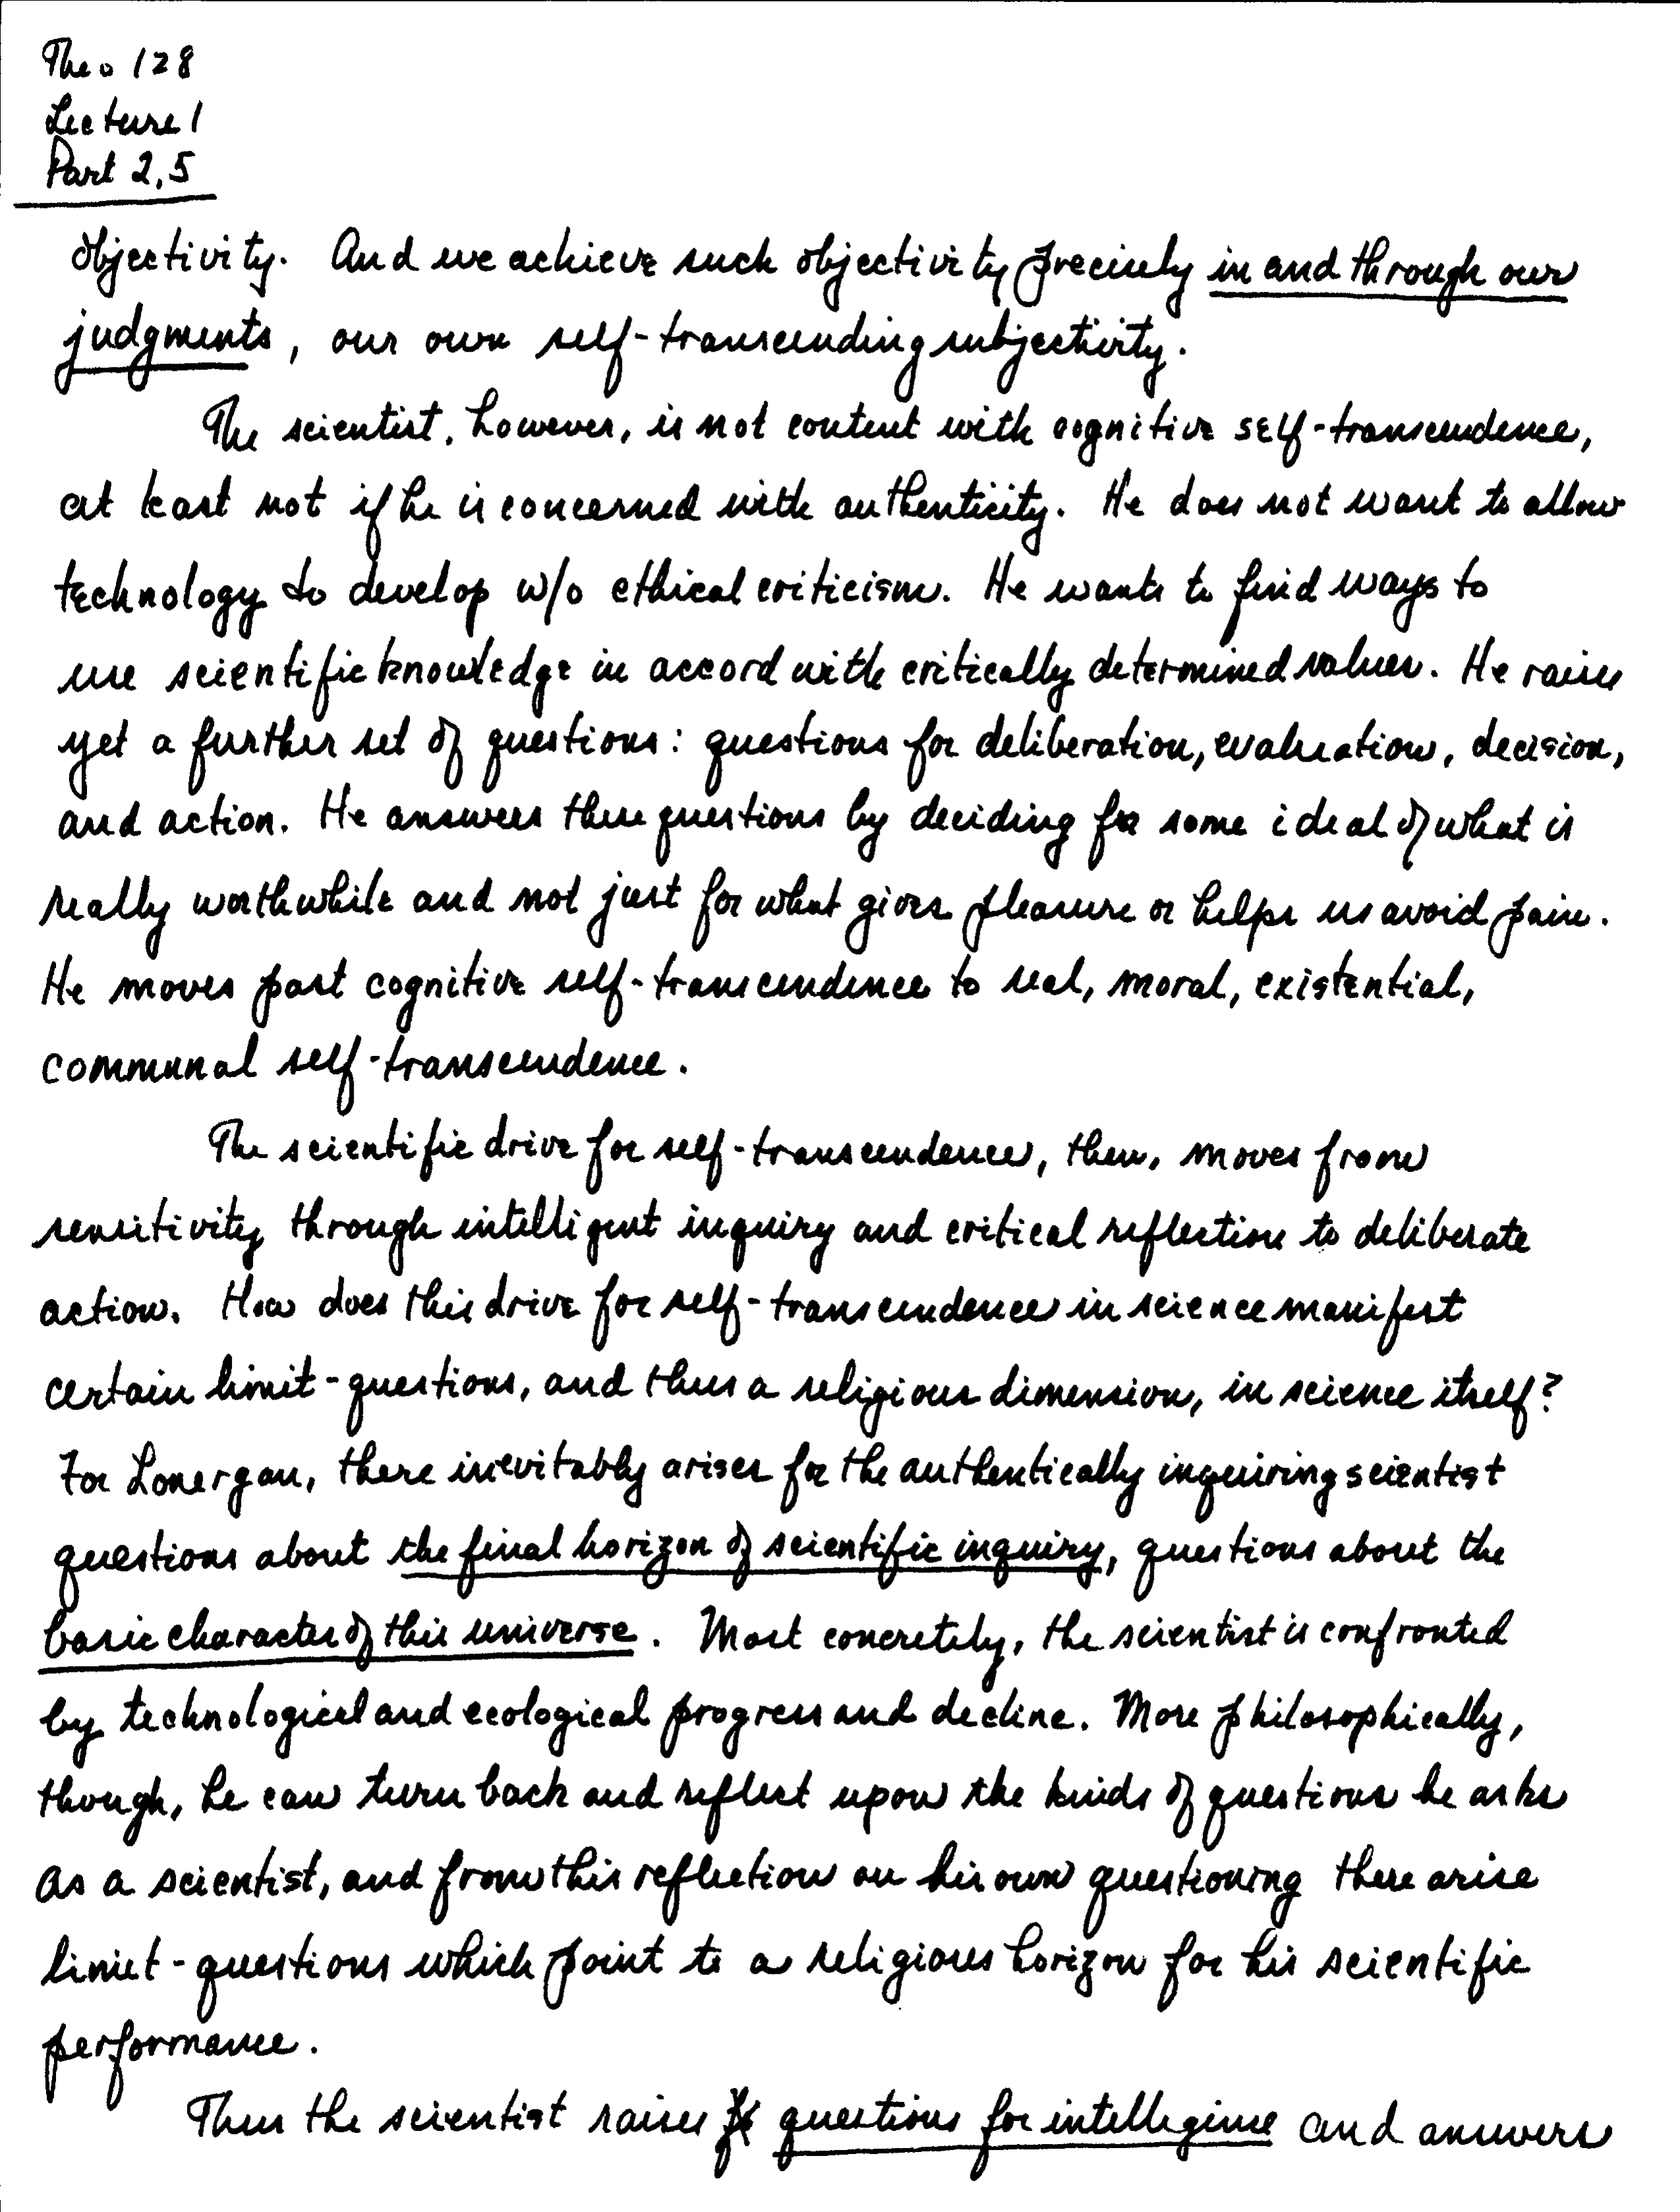 Theo 128
Lecture 1
Part 2, 5
objectivity. And we achieve such objectivity precisely in and through our
judgments, our own self-transcending subjectivity.
The scientist, however, is not content with cognitive self-transcendence,
at least not if he is concerned with authenticity. He does not want to allow
technology to develop w/o ethical criticism. He wants to find ways to
use scientific knowledge in accord with critically determined values. He raises
yet a further set of questions: questions for deliberation, evaluation, decision,
and action. He answers these questions by deciding for some ideal of what is
really worthwhile and not just for what gives pleasure or helps us avoid pain.
He moves past cognitive self-transcendence to real, moral, existential,
communal self-transcendence.
The scientific drive for self-transcendence, then, moves from
sensitivity through intelligent inquiry and critical reflection to deliberate
action. How does this drive for self-transcendence in science manifest
certain limit-questions, and thus a religious dimension, in science itself?
For Lonergan, there inevitably arises for the authentically inquiring scientist
questions about the final horizon of scientific inquiry, questions about the
basic character of this universe. Most concretely, the scientist is confronted
by technological and ecological progress and decline. More philosophically,
though, he can turn back and reflect upon the kinds of questions he asks
as a scientist, and from this reflection on his own questioning there arise
limit-questions which point to a religious horizon for his scientific
performance.
Thus the scientist raises questions for intelligence and answers